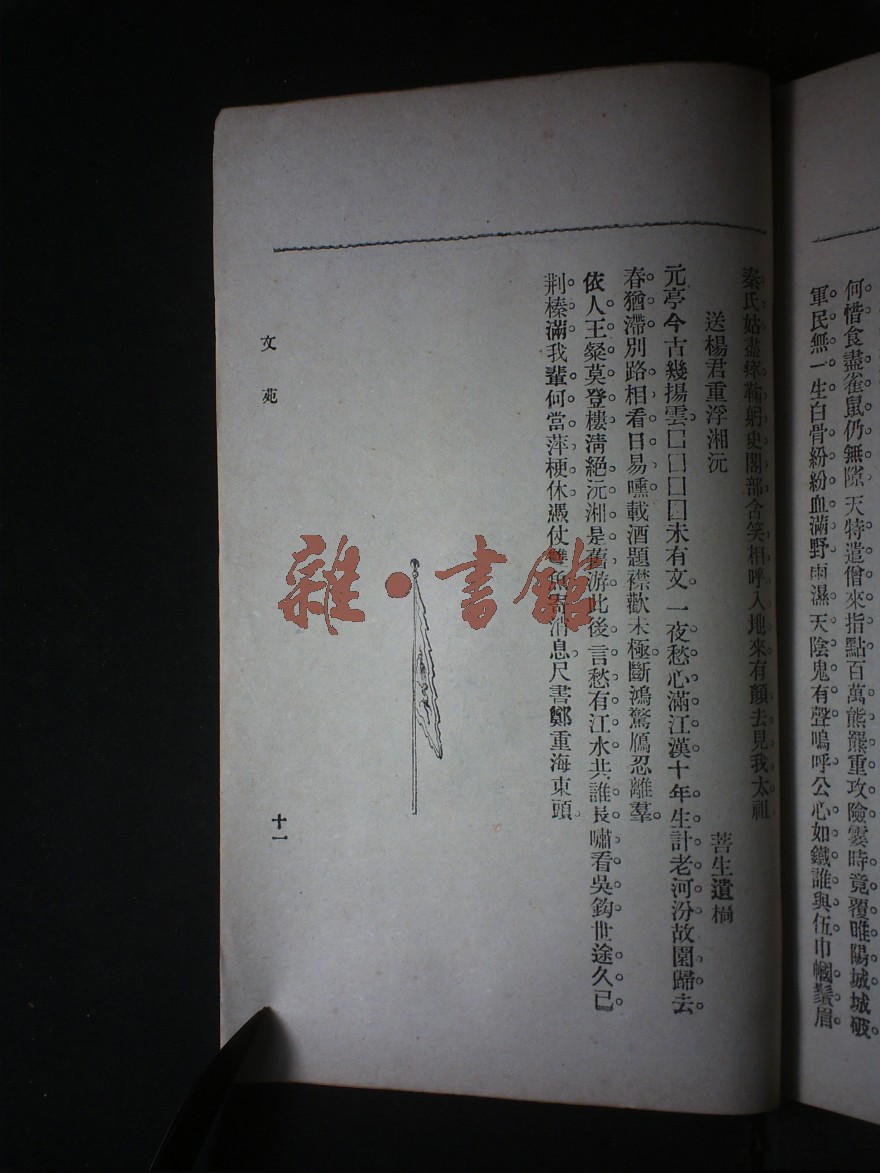 何惜食盡雀鼠仍無隙天特遣僧來指點百萬熊羆重攻險霎時竟覆睢陽城城破
軍民無一生白骨紛紛血滿野雨濕天陰鬼有聲嗚呼公心如鐵誰與伍巾幗鬚眉
秦氏姑盡瘁鞠躬史閣部含笑相呼入地來有顏去見我太祖
送楊君重浮湘沅 菩生遺槁
元亭今古幾揚雲□□□□未有文一夜愁心滿江漢十年生計老河汾故園歸去
春猶滯別路相看日易曛載酒題襟歡未極斷鴻驚鴈忍離羣
依人王粲莫登樓淸絕沅湘是舊游此後言愁有江水共誰長嘯看吳鈎世途久已
荆榛滿我輩何當萍梗休憑仗雙魚寄消息尺書鄭重海東頭
文苑
十一
雜·書館